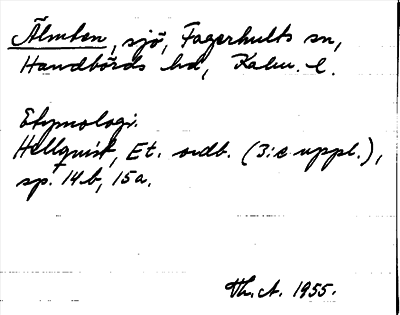 Älmten, sjö, Fagerhults sn,
Handbörds hd, Kalm. l.
Etymologi.
Hellquist, Et. ordb. (3:e uppl.),
sp. 14b, 15a.
Th. A. 1955.